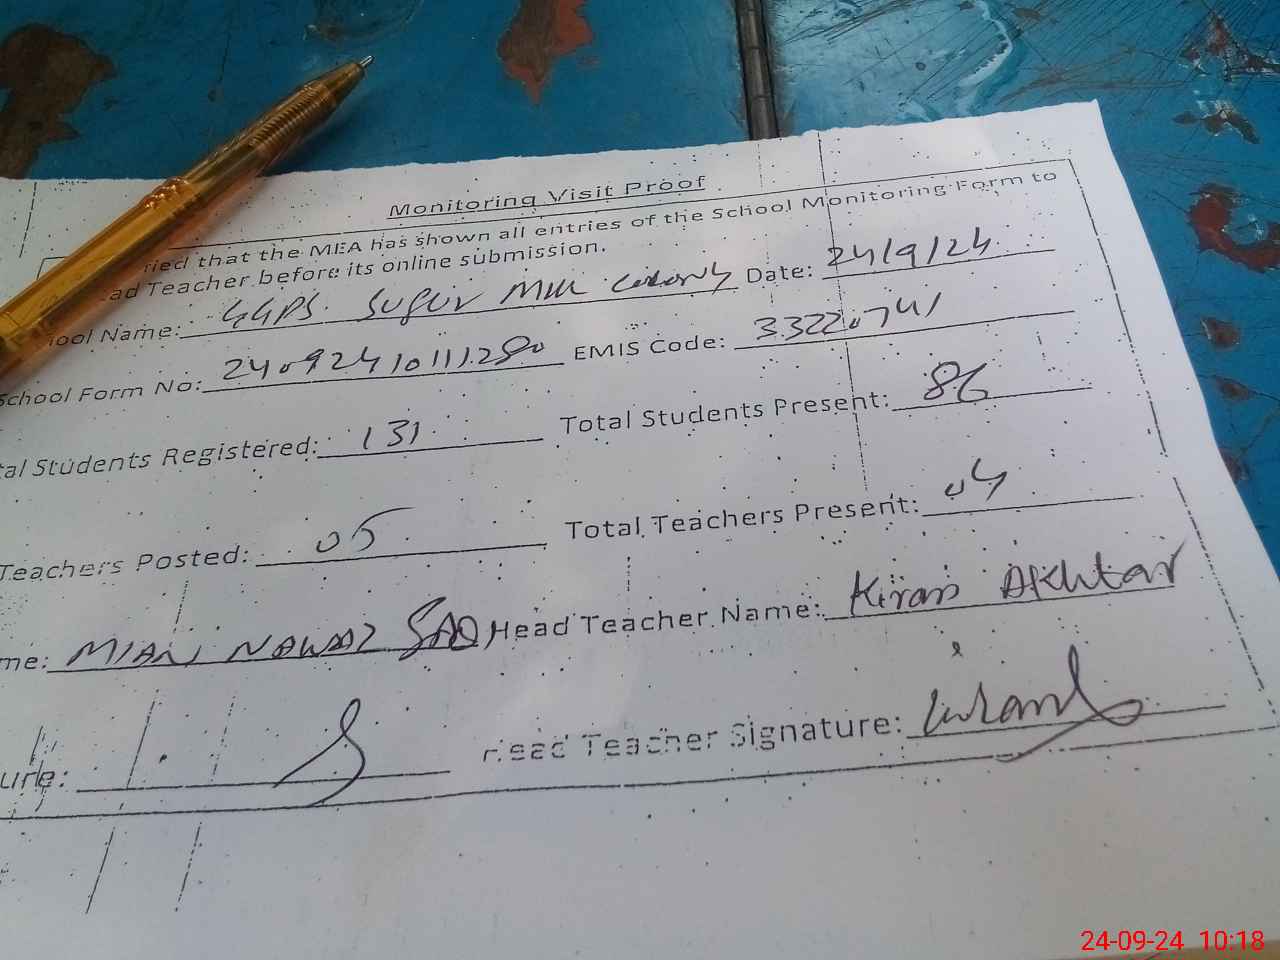 Monitoring Visit Proof
ried that the MEA has shown all entries of the School Monitoring Form to
ad Teacher before its online submission.
ool Name: GGPS. Sugur Mill Colony Date: 24/9/24
School Form No: 24092410111280 EMIS Code: 33220741
tal Students Registered: 131 Total Students Present: 86
Teachers Posted: 05 Total Teachers Present: 04
me: MIAN NAWAZ Head Teacher Name: Kiran Akhtar
ure: Head Teacher Signature:
24-09-24 10:18